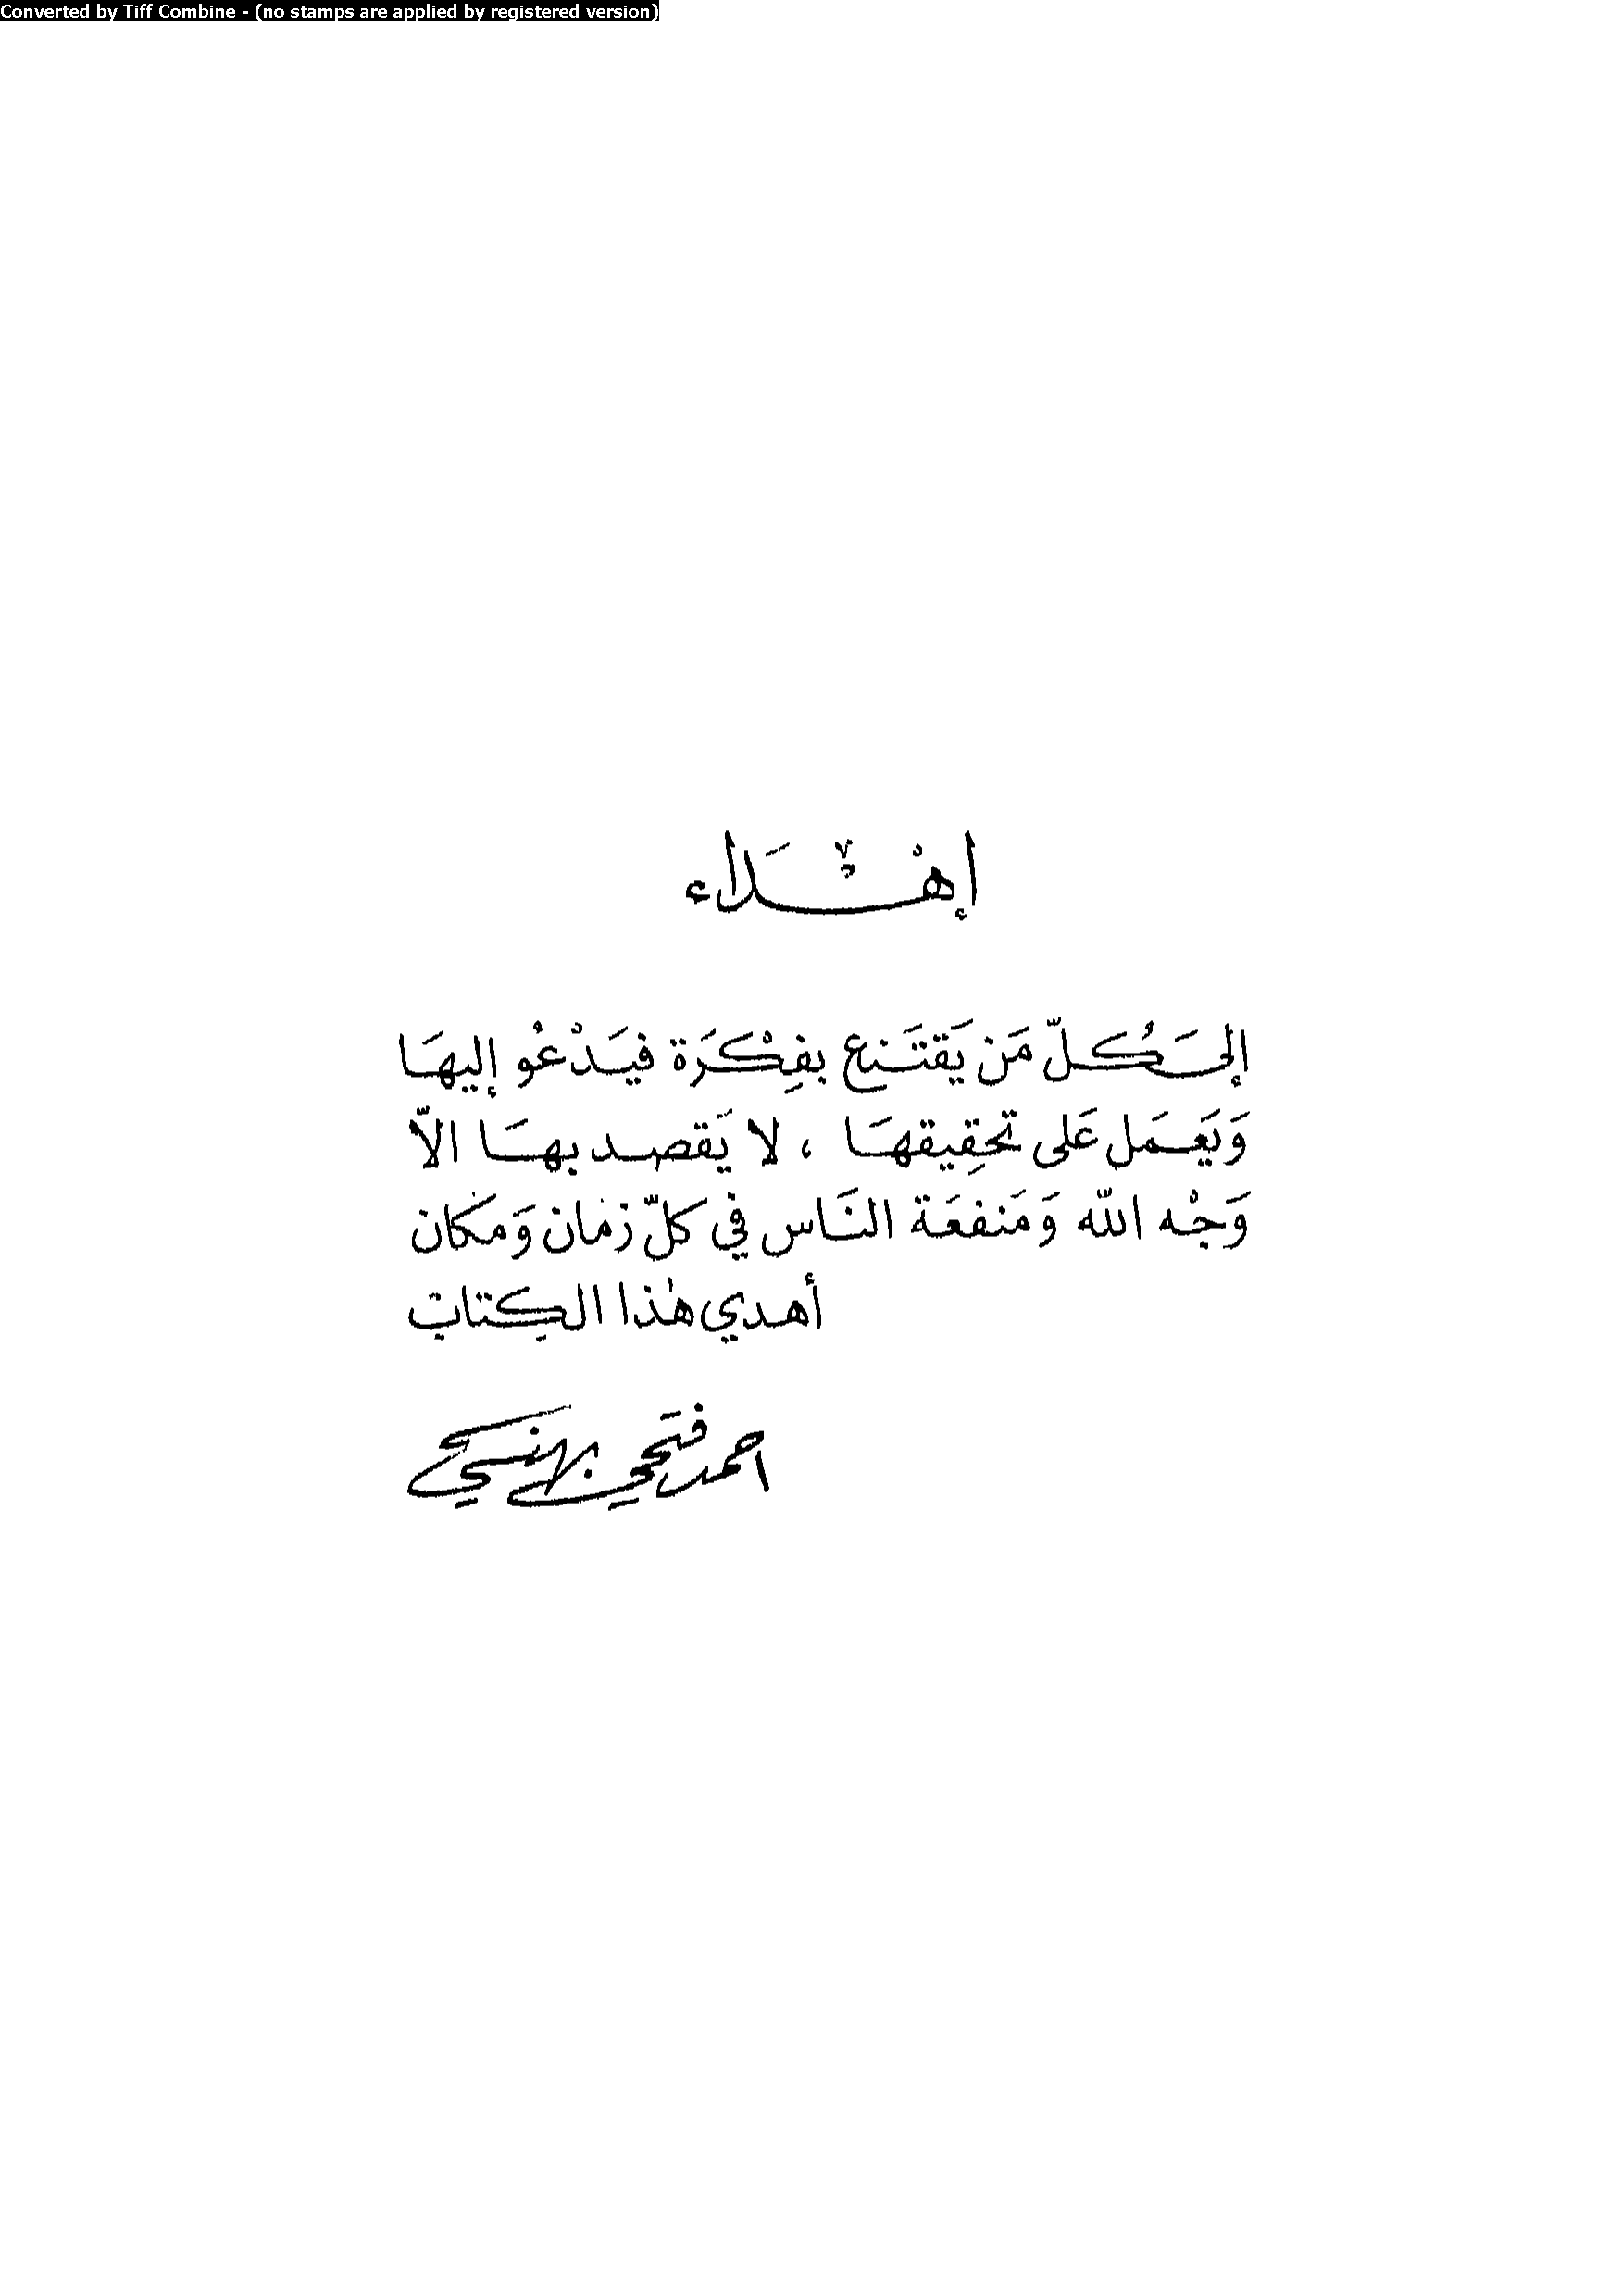 Converted by Tiff Combine - (no stamps are applied by registered version)
إهْدَاء
إلىَ كُلّ مَن يَقتَنع بفِكْرَة فيَدْعُو إليهَا
وَيَعمَل عَلى تحقِيقهَا ، لا يَقصد بهَا الاّ
وَجْه اللّه وَمَنفعَة النَاس في كلّ زمَان وَمكَان
أهدي هٰذا الكِتابْ
احمد فتحي بهنسي